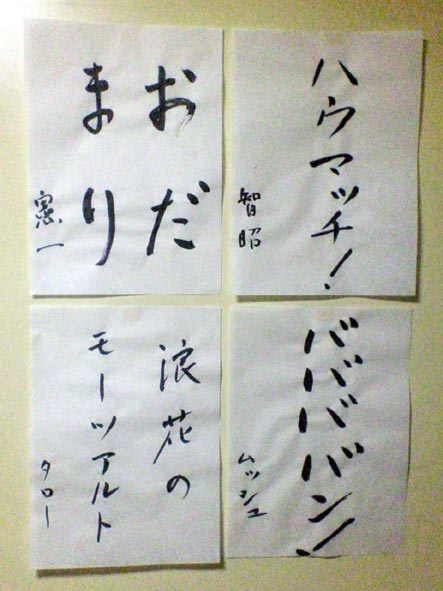 ハウマッチ!
智昭
おだ
まり
憲一
バババババン!
ムッシュ
浪花の
モーツアルト
タロー